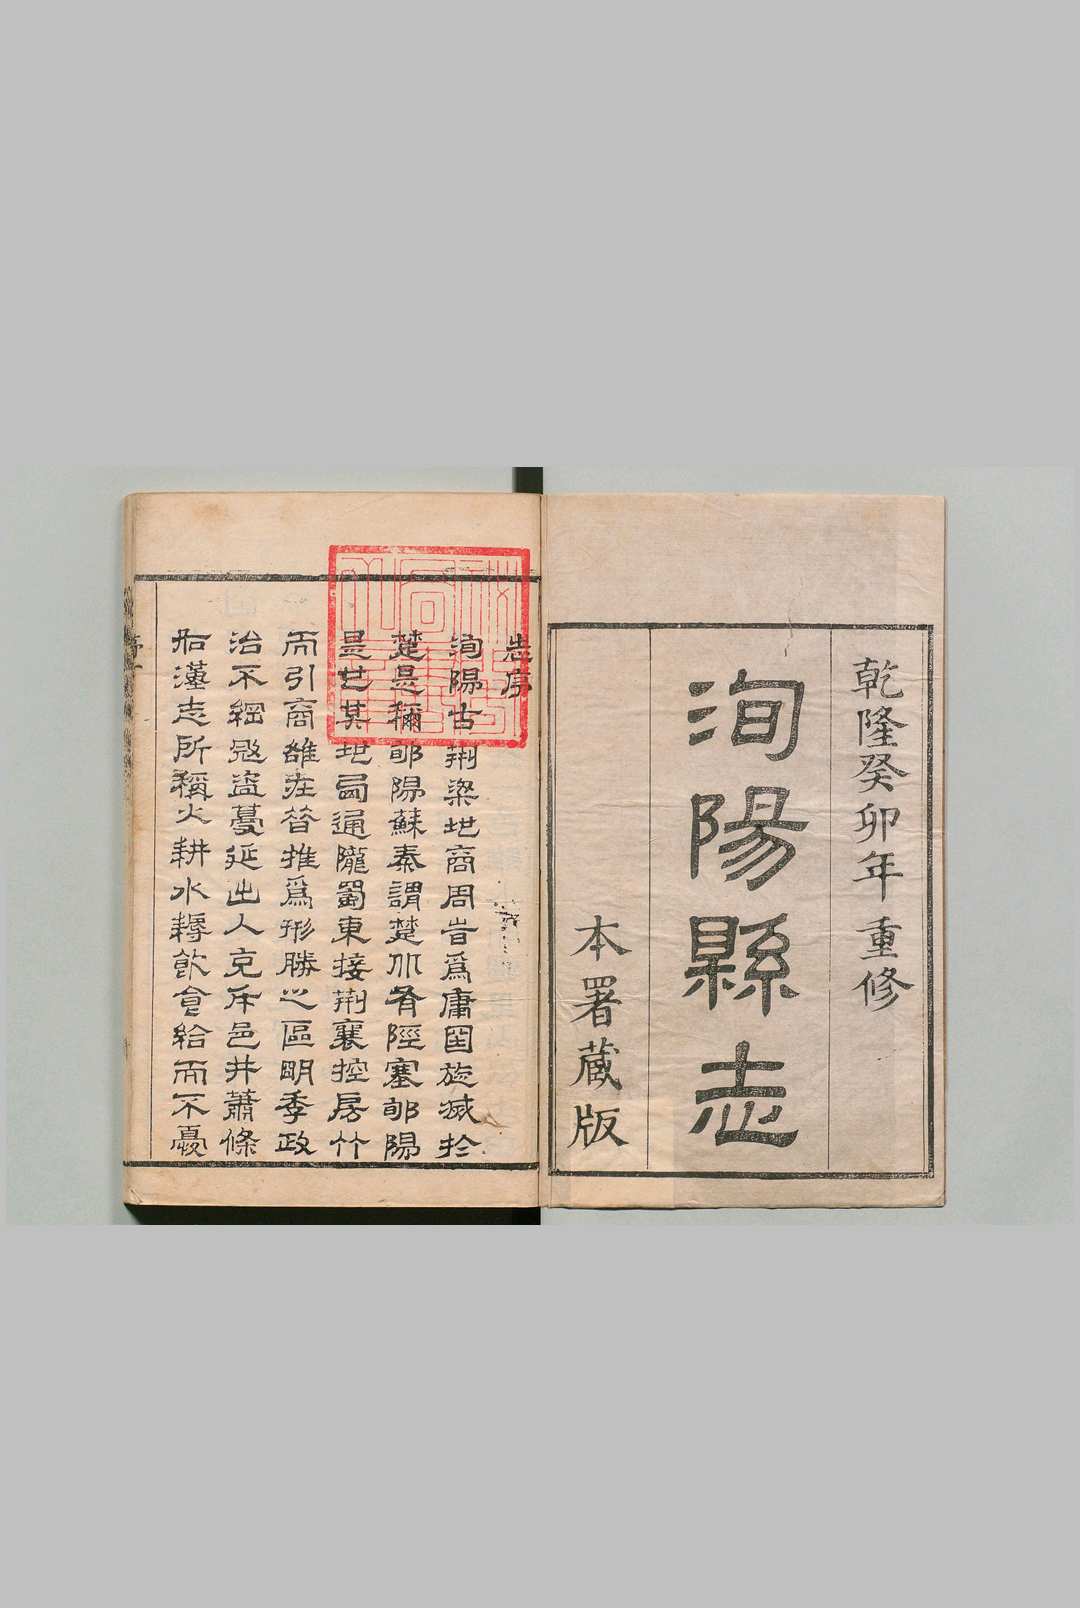 乾隆癸卯年重修
洵陽縣志
本署藏版
志序
洵陽古荆梁地商周皆爲庸國旋滅於
楚是稱郇陽蘇秦謂楚北有陘塞郇陽
是也其地西通隴蜀東接荆襄控房竹
而引商雒在昔推爲形勝之區明季政
治不綱寇盜蔓延出人克斥邑井蕭條
始漢志所稱火耕水耨飲食給而不憂
序 一